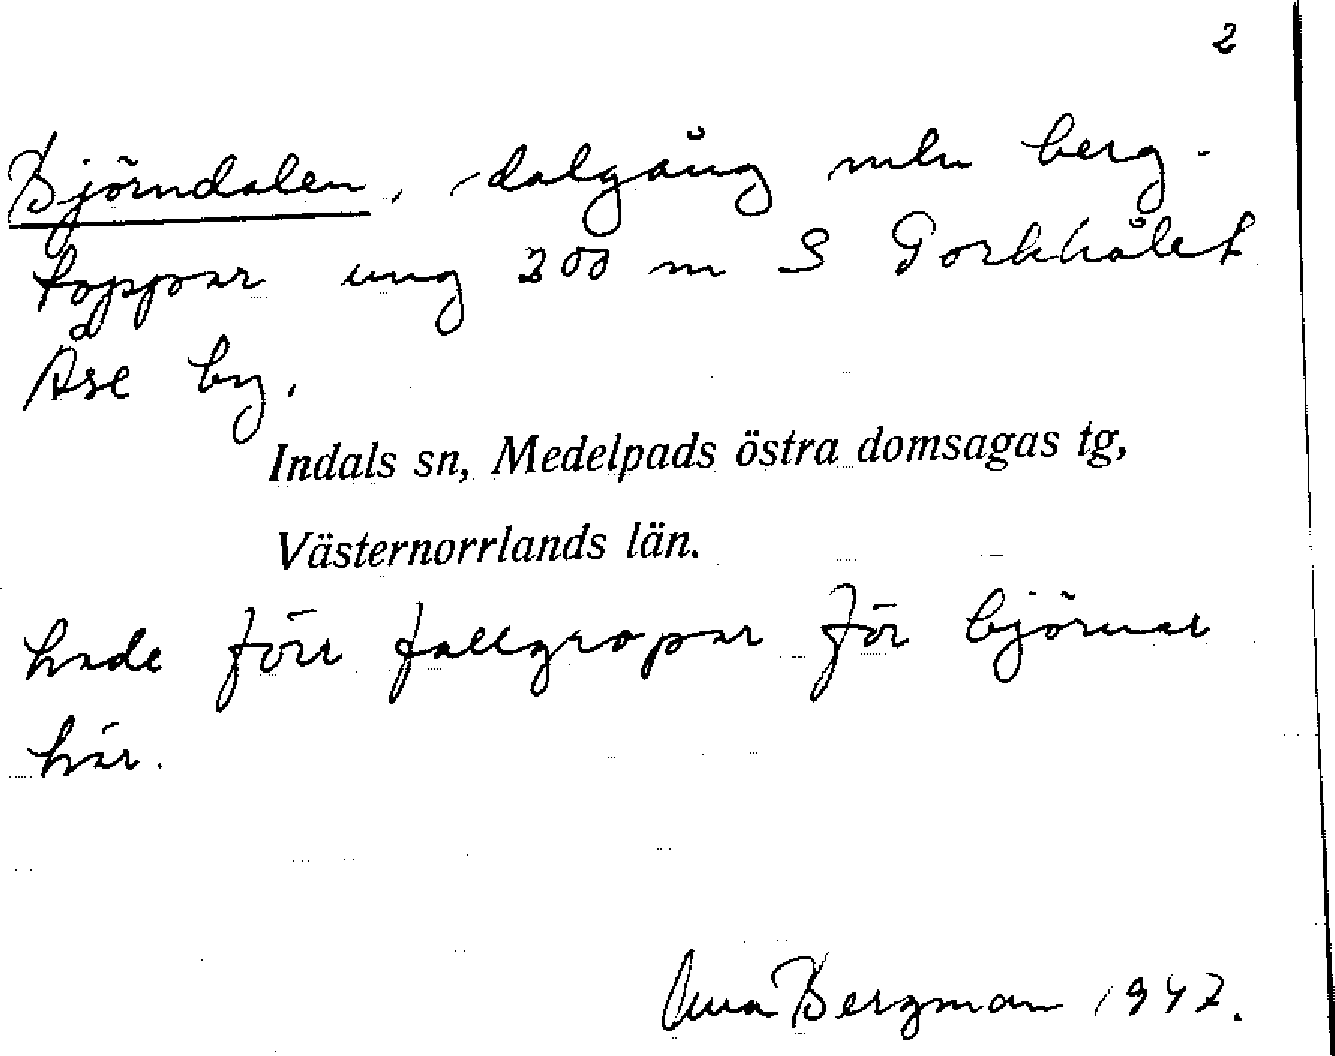 2
Björndalen, dalgång mln berg-
toppar ung 200 m S Torkhålet
Åse by.
Indals sn, Medelpads östra domsagas tg,
Västernorrlands län.
hade förr fallgropar för björnar
här.
Bergman 1947.